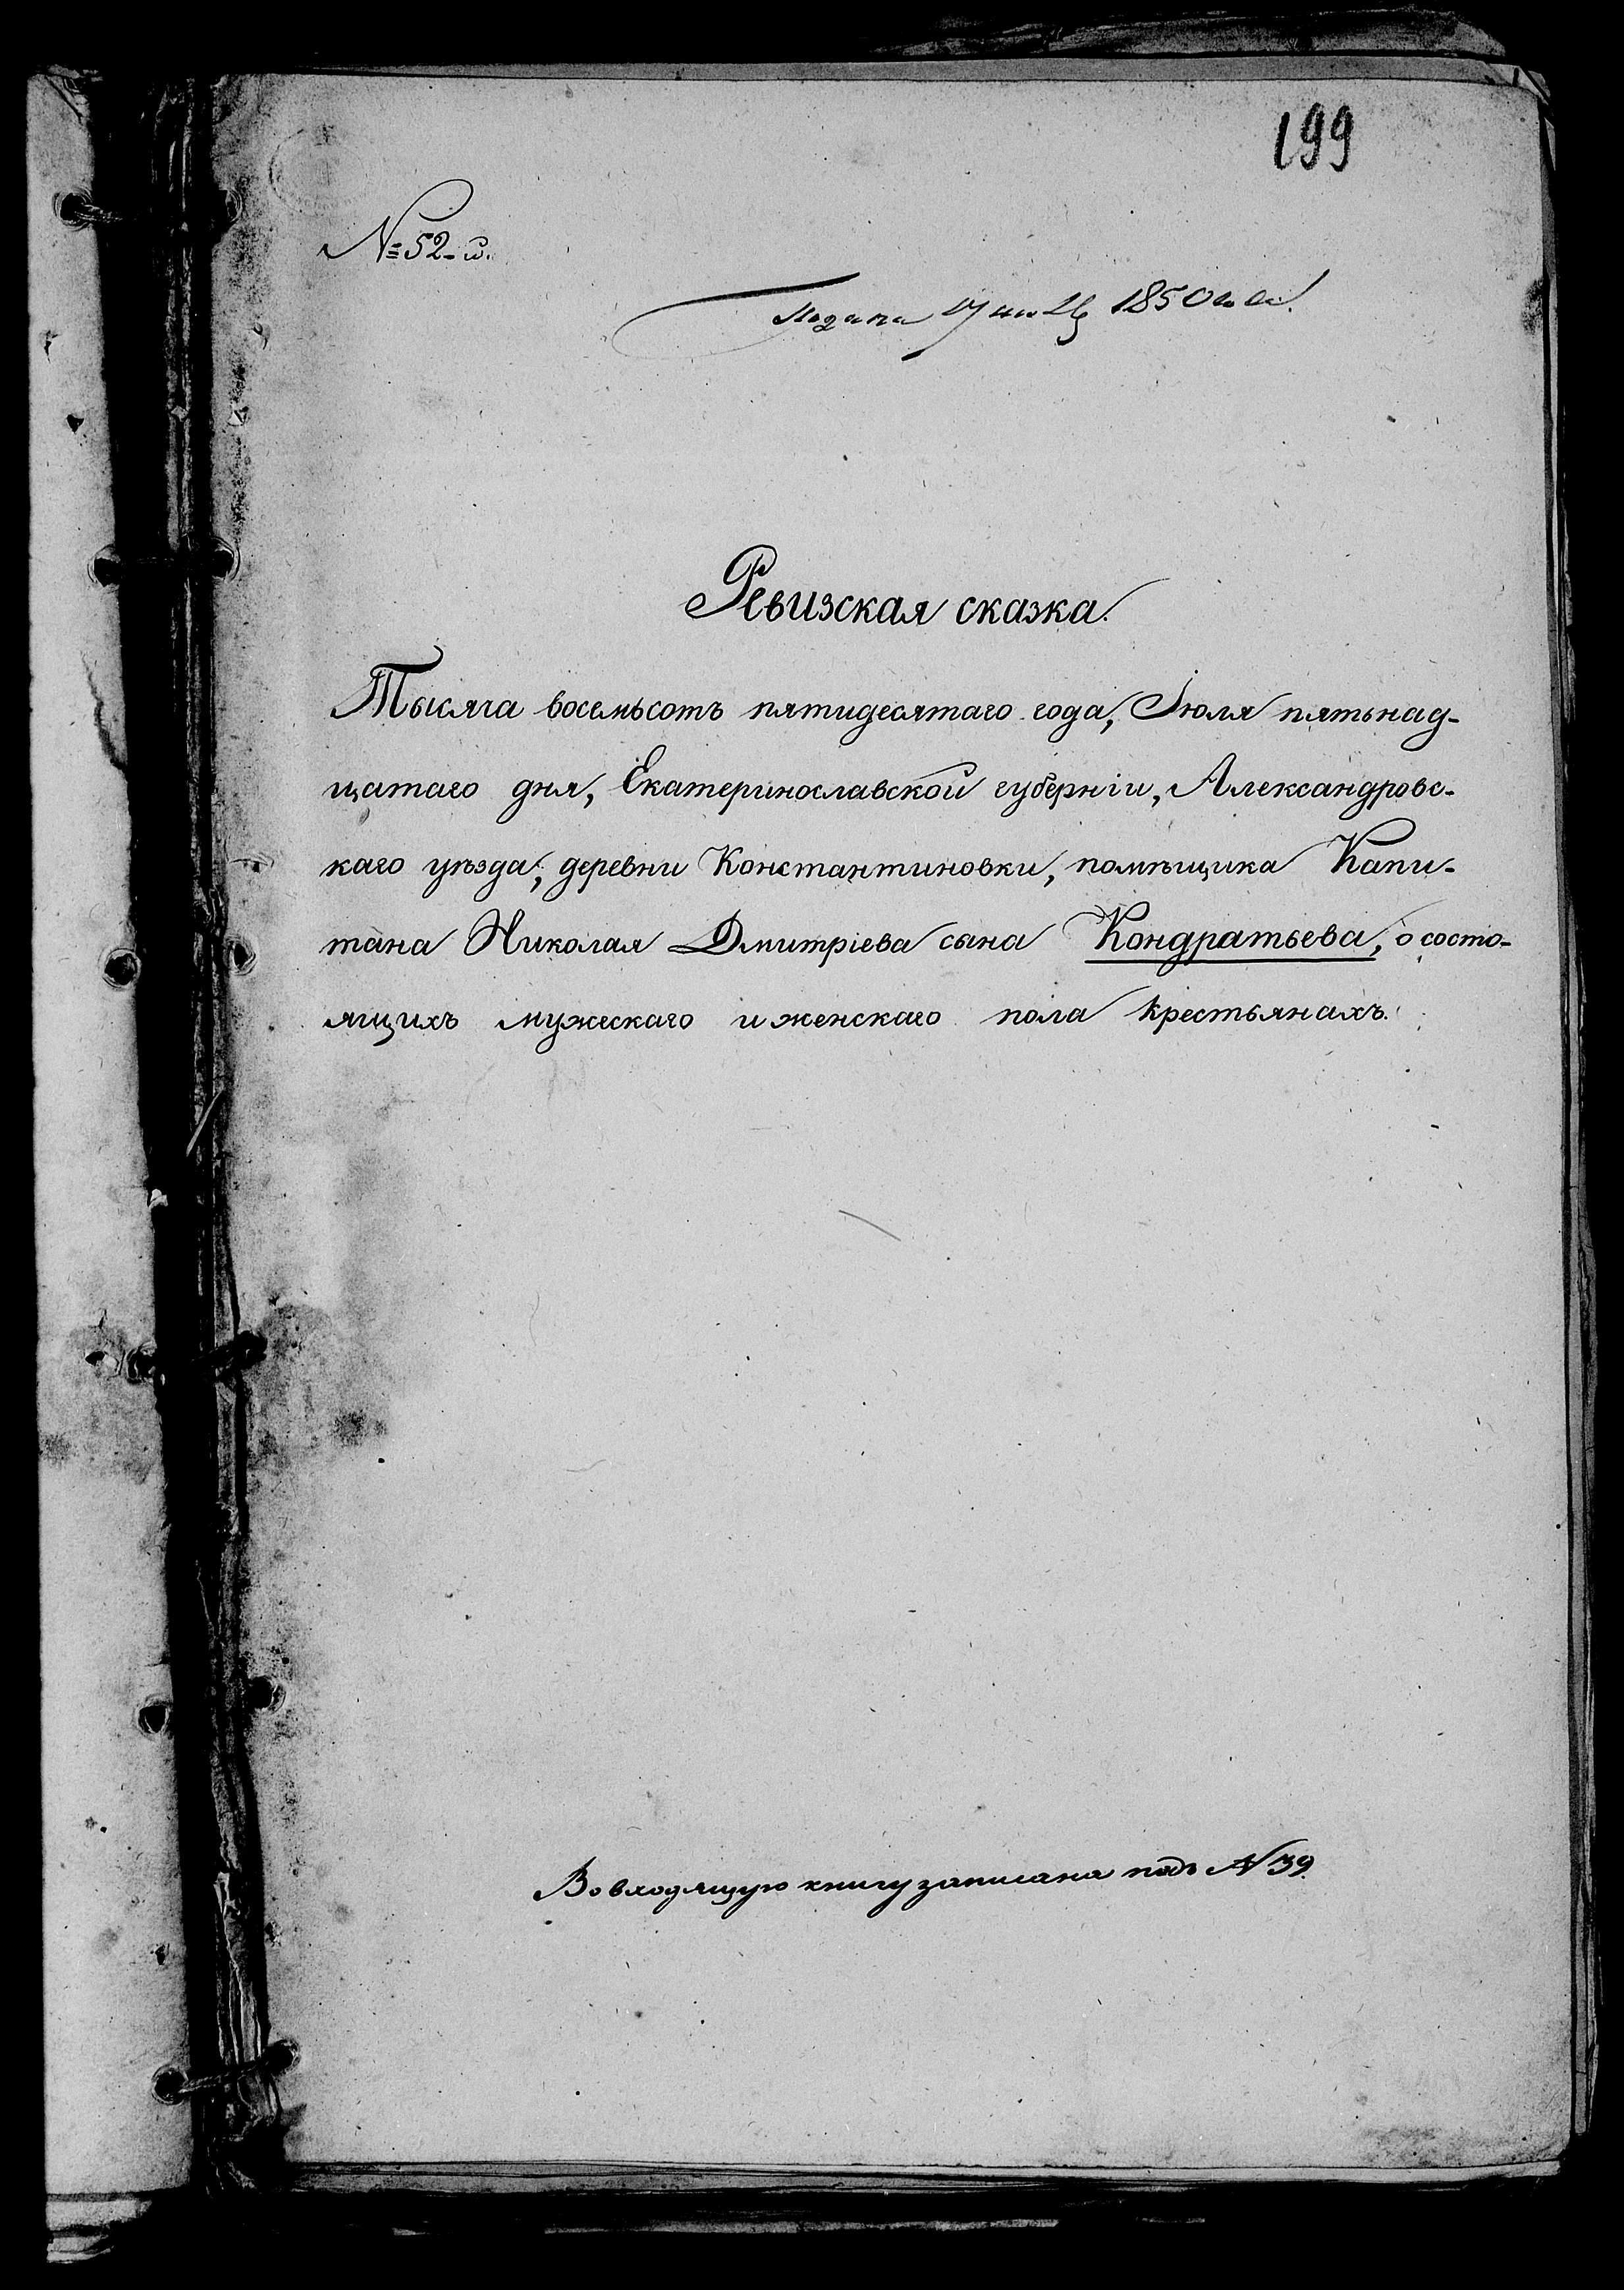 199
№ 52-й.
Подана 1850 года.
Ревизская сказка.
Тысяча восемьсотъ пятидесятаго года, Іюля пятьнад-
цатаго дня, Екатеринославской губерніи, Александровс-
каго уѣзда, деревни Константиновки, помѣщика Капи-
тана Николая Дмитріева сына Кондратьева, о состо-
ящихъ мужескаго и женскаго пола крестьянахъ.
Во входящую книгу записана подъ № 39.